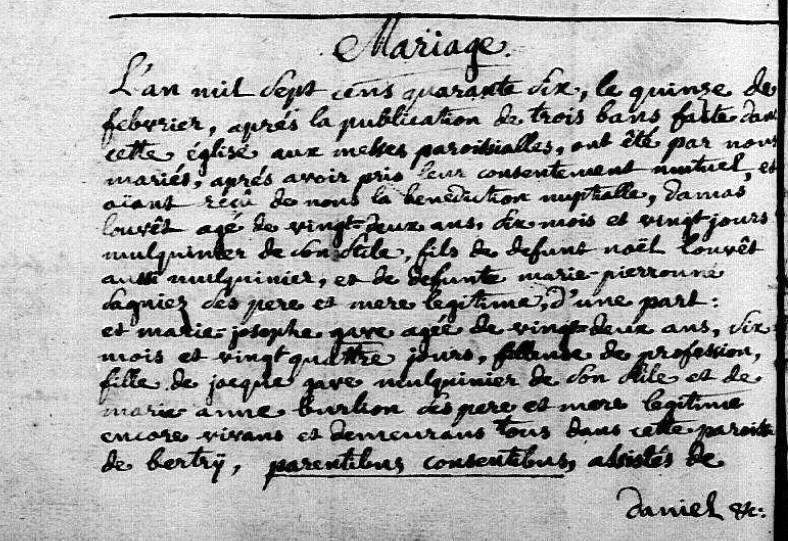 Mariage.
L'an mil sept cens quarante six, le quinze de
febvrier, aprés la publication de trois bans faite dans
cette église aux messes paroissialles, ont été par nous
mariés, aprés avoir pris leur consentement mutuel, et
aiant reçu de nous la benediction nuptialle, damas
louvêt agé de vingt-deux ans, six mois et vingt jours
mulquinier de son stile, fils de defunt noël louvêt
aussi mulquinier, et de defunte marie-pierronne
dagniez ses pere et mere legitime, d'une part:
et marie-josophe gave agée de vingt-deux ans, six
mois et vingt quattre jours, filleuse de profession,
fille de jacque gave mulquinier de son stile et de
marie anne burlion ses pere et mere legitime
encore vivans et demeurans tous dans cette paroisse
de bertrÿ, parentibus consentibus, assistés de
daniel &c: